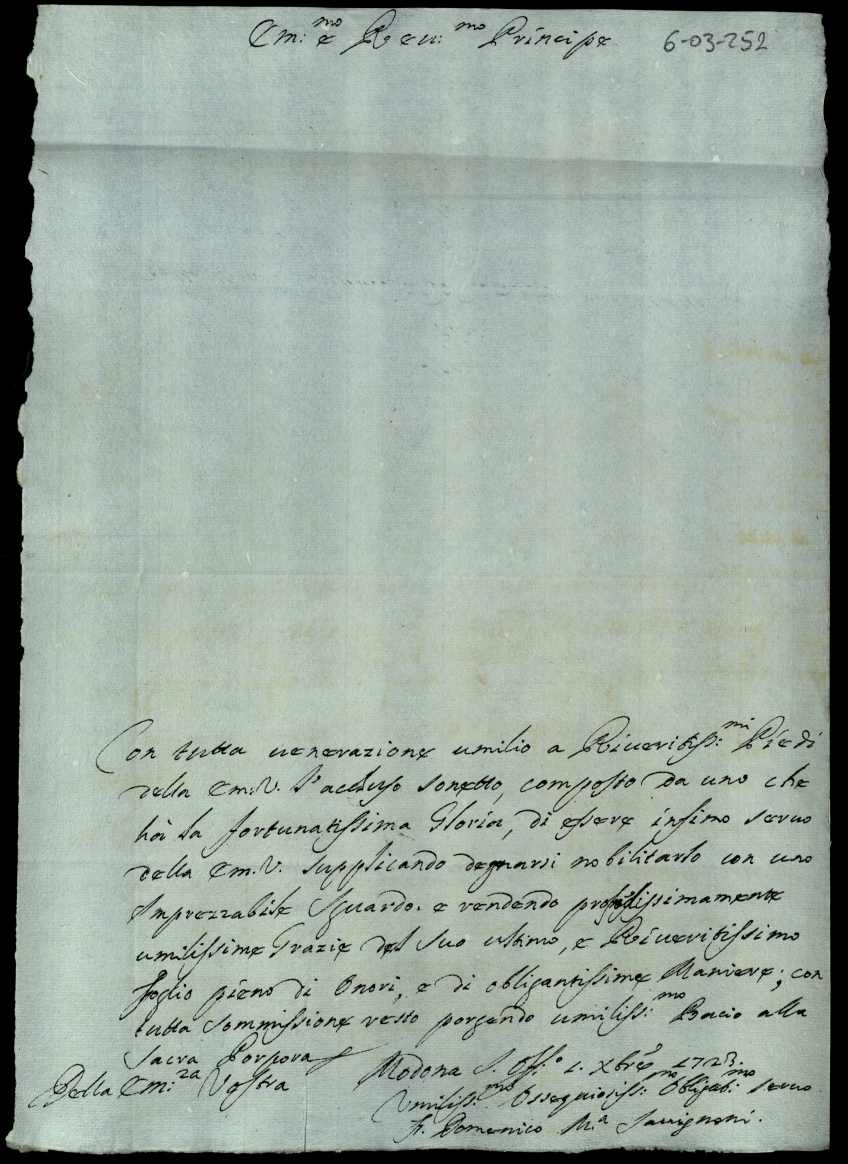 Em:mo e Reu:mo Principe
6-03-252
Con tutta uenerazione umilio a Riueritissi:mi Piedi
della Em:V. l'accluso sonetto, composto da uno che
hà la fortunatissima Gloria, di essere infimo seruo
della Em.V. supplicando degnarsi nobilitarlo con uno
Imprezzabile Sguardo. e rendendo
umilissime Grazie del suo ultimo, e Riueritissimo
foglio pieno di Onori, e di obligantissime Maniere; con
tutta sommissione resto porgendo umiliss:mo Bacio alla
Sacra Porpora
Modona S. Off:o 1. Xbre
Della Em:za Vostra
Umiliss:mo Ossequiosiss:mo Obligat:mo seruo
F. Domenico M.a